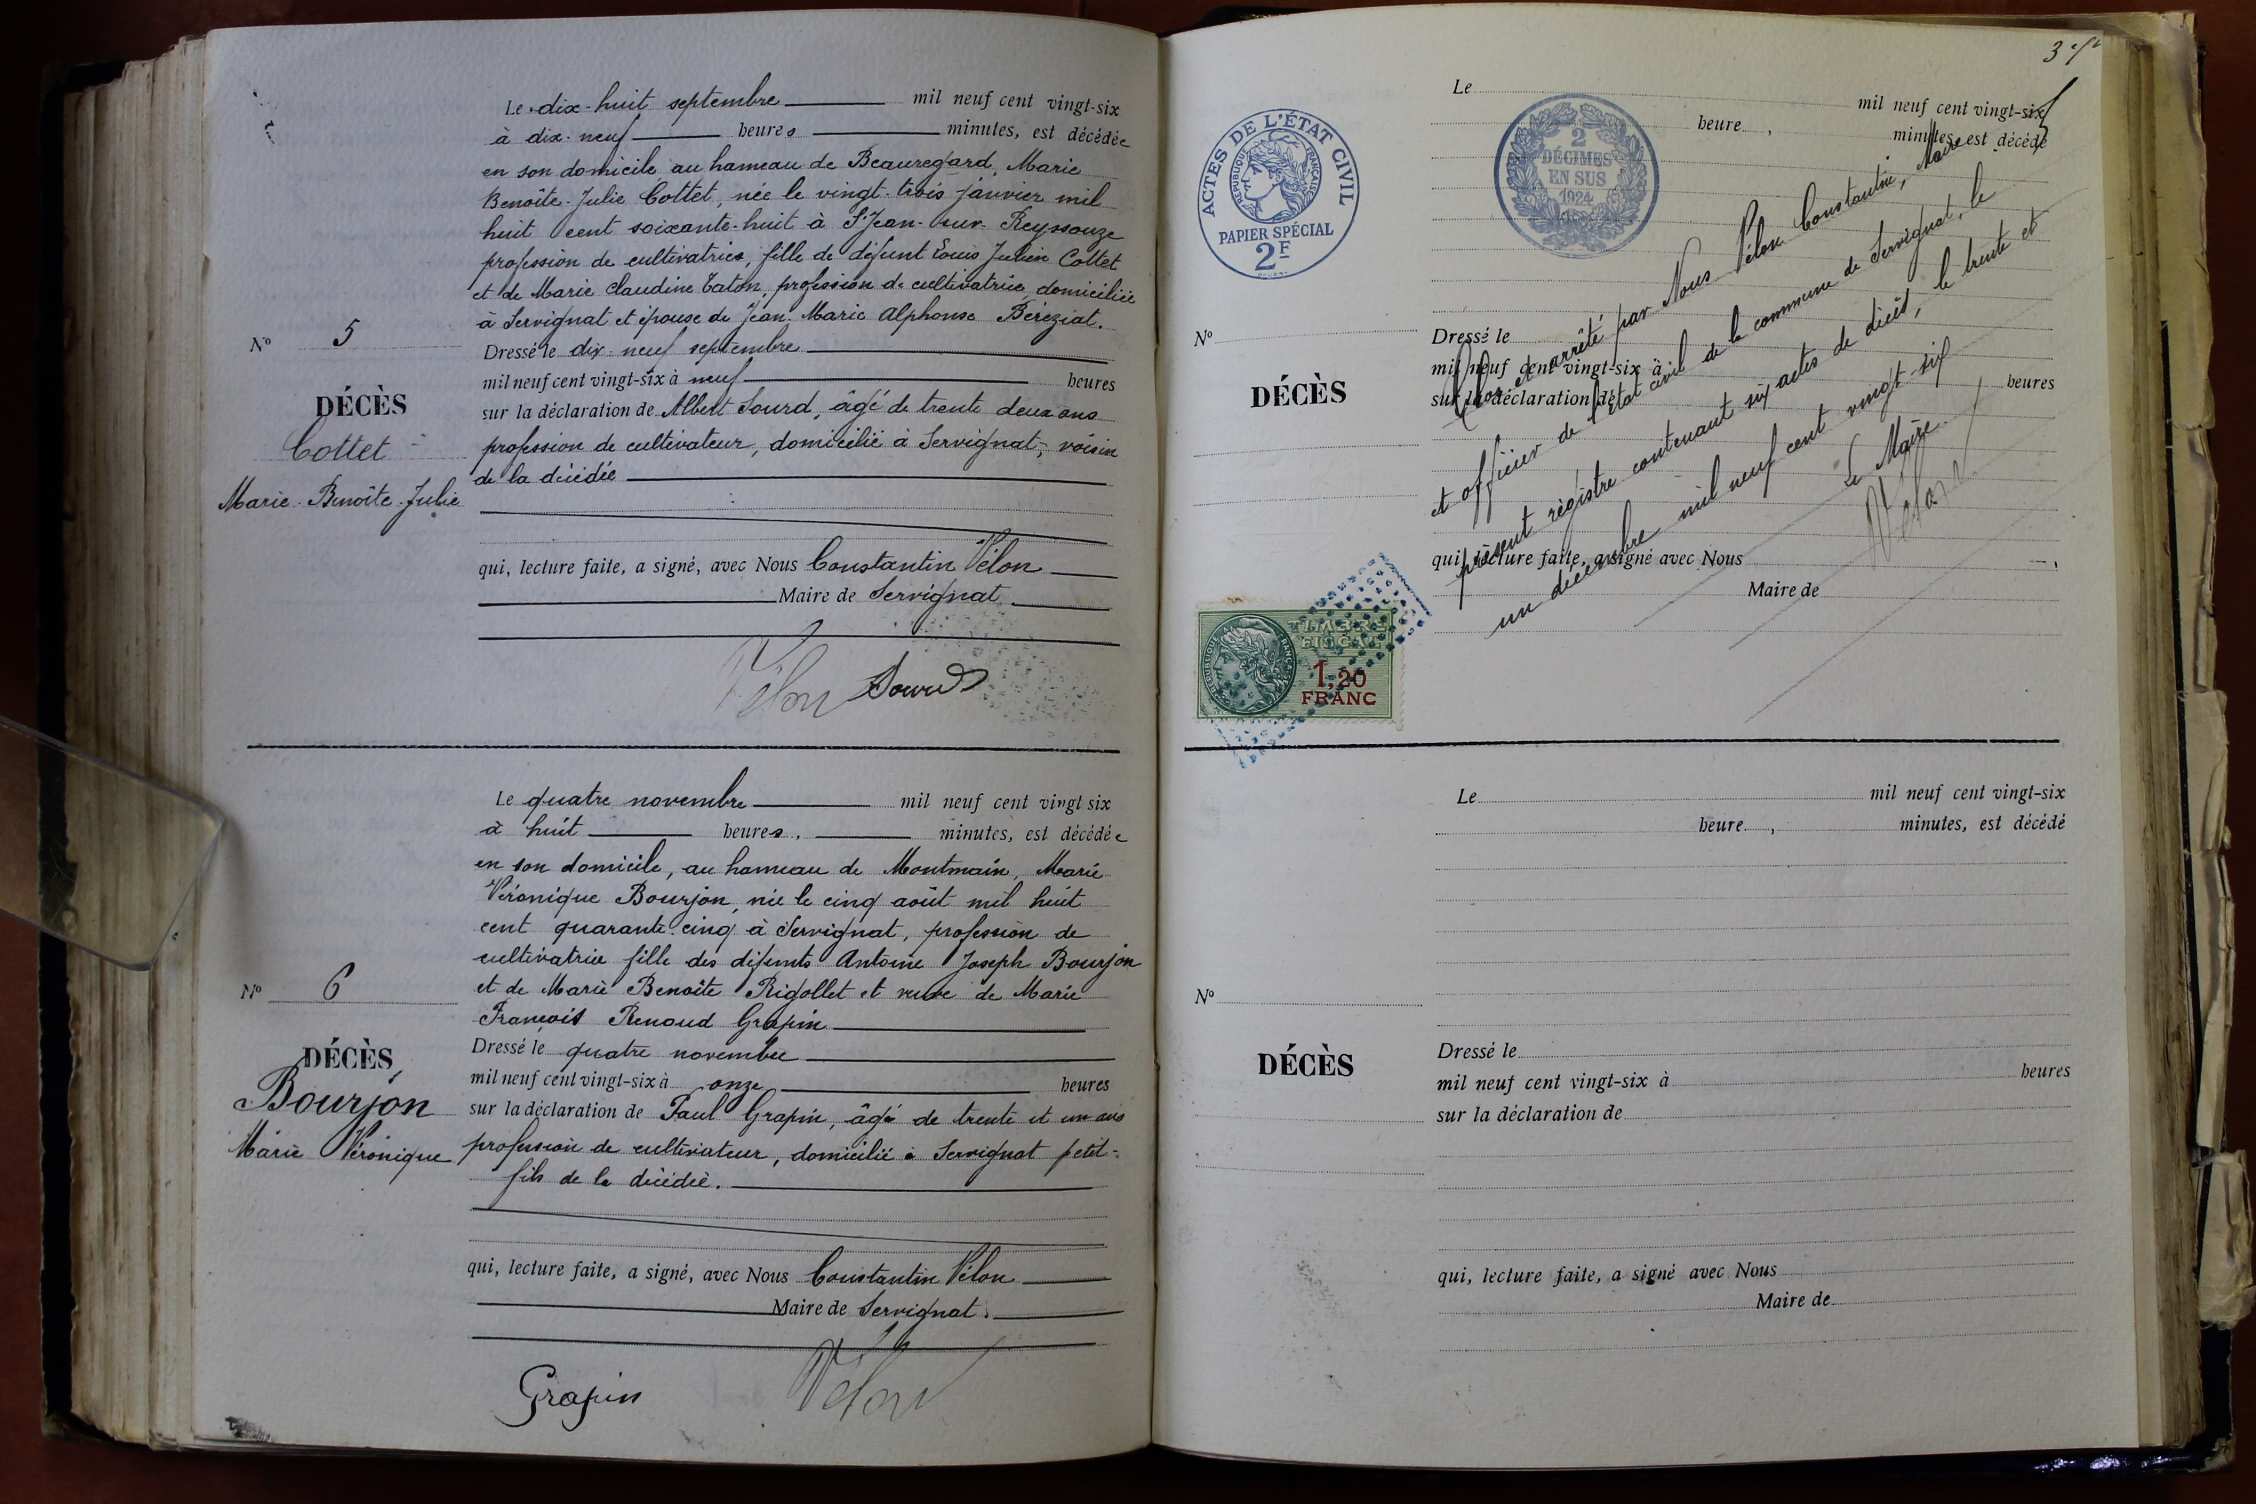 Le dix-huit septembre mil neuf cent vingt-six
à dix-neuf heures minutes, est décédée
en son domicile au hameau de Beauregard, Marie
Benoîte-Julie Cottet, née le vingt-trois janvier mil
huit cent soixante-huit à St Jean-sur-Reyssouze
profession de cultivatrice, fille de défunt Louis Julien Cottet
et de Marie Claudine Caton, profession de cultivatrice domiciliée
à Servignat et épouse de Jean-Marie Alphonse Béréziat.
No 5
DÉCÈS
Cottet
Marie-Benoîte-Julie
Dressé le dix-neuf septembre
mil neuf cent vingt-six à neuf heures
sur la déclaration de Albert Sourd, âgé de trente deux ans
profession de cultivateur, domicilié à Servignat, voisin
de la décédée
qui, lecture faite, a signé, avec Nous Constantin Vélon
Maire de Servignat
Vélon Sourd
Le quatre novembre mil neuf cent vingt six
à huit heures, minutes, est décédée
en son domicile, au hameau de Montmain, Marie
Véronique Bourjon, née le cinq août mil huit
cent quarante-cinq à Servignat, profession de
cultivatrice fille des défunts Antoine Joseph Bourjon
et de Marie Benoîte Rigollet et veuve de Marie
François Renoud Grapin
No 6
DÉCÈS
Bourjon
Marie Véronique
Dressé le quatre novembre
mil neuf cent vingt-six à onze heures
sur la déclaration de Paul Grapin, âgé de trente et un ans
profession de cultivateur, domicilié à Servignat petit-
fils de la décédée.
qui, lecture faite, a signé, avec Nous Constantin Vélon
Maire de Servignat.
Grapin Vélon
ACTES DE L'ÉTAT CIVIL
RÉPUBLIQUE FRANÇAISE
PAPIER SPÉCIAL
2F
2
DÉCIMES
EN SUS
1924
Le mil neuf cent vingt-six
heure , minutes, est décédé
No
DÉCÈS
Dressé le
mil neuf cent vingt-six à heures
sur la déclaration de
qui, lecture faite, a signé avec Nous ,
Maire de
Clos et arrêté par Nous Vélon Constantin, Maire
et officier de l'état civil de la commune de Servignat, le
présent régistre contenant six actes de décès, le trente et
un décembre mil neuf cent vingt-six
Le Maire
Vélon
RÉPUBLIQUE FRANÇAISE
TIMBRE
FISCAL
1,20
FRANC
Le mil neuf cent vingt-six
heure , minutes, est décédé
No
DÉCÈS
Dressé le
mil neuf cent vingt-six à heures
sur la déclaration de
qui, lecture faite, a signé avec Nous
Maire de